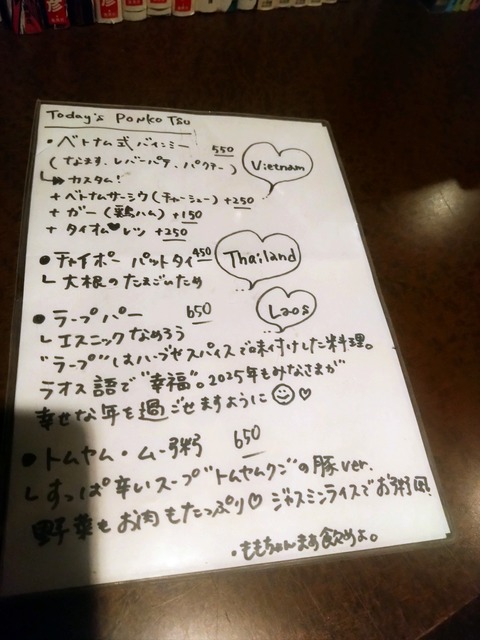 Today's Ponko Tsu
・ベトナム式バインミー 550
(なます、レバーパテ、パクチー)
カスタム!
+ベトナムサーシウ(チャーシュー)+250
+ガー(鶏ハム)+150
+タイオム♥レツ +250
Vietnam
●チャイポー パットタイ 450
└大根のたまごいため
Thailand
●ラープパー 650
└エスニックなめろう
Laos
"ラープ"はハーブやスパイスで味付けした料理。
ラオス語で"幸福"。2025年もみなさまが
幸せな年を過ごせますように☺♡
●トムヤム・ムー粥 650
└すっぱ辛いスープ"トムヤムクン"の豚ver.
野菜もお肉もたっぷり♡ ジャスミンライスでお粥風
・ももちゃんまず飲めよ。